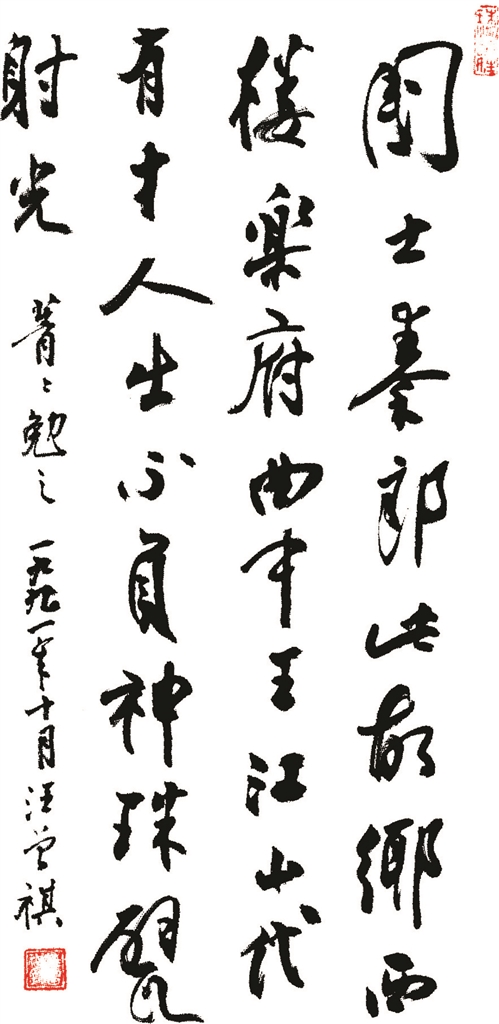 國士秦郎此故鄉西
樓樂府曲中王江山代
有才人出不負神珠甓
射光
菁々勉之 一九九一年十月汪曾祺